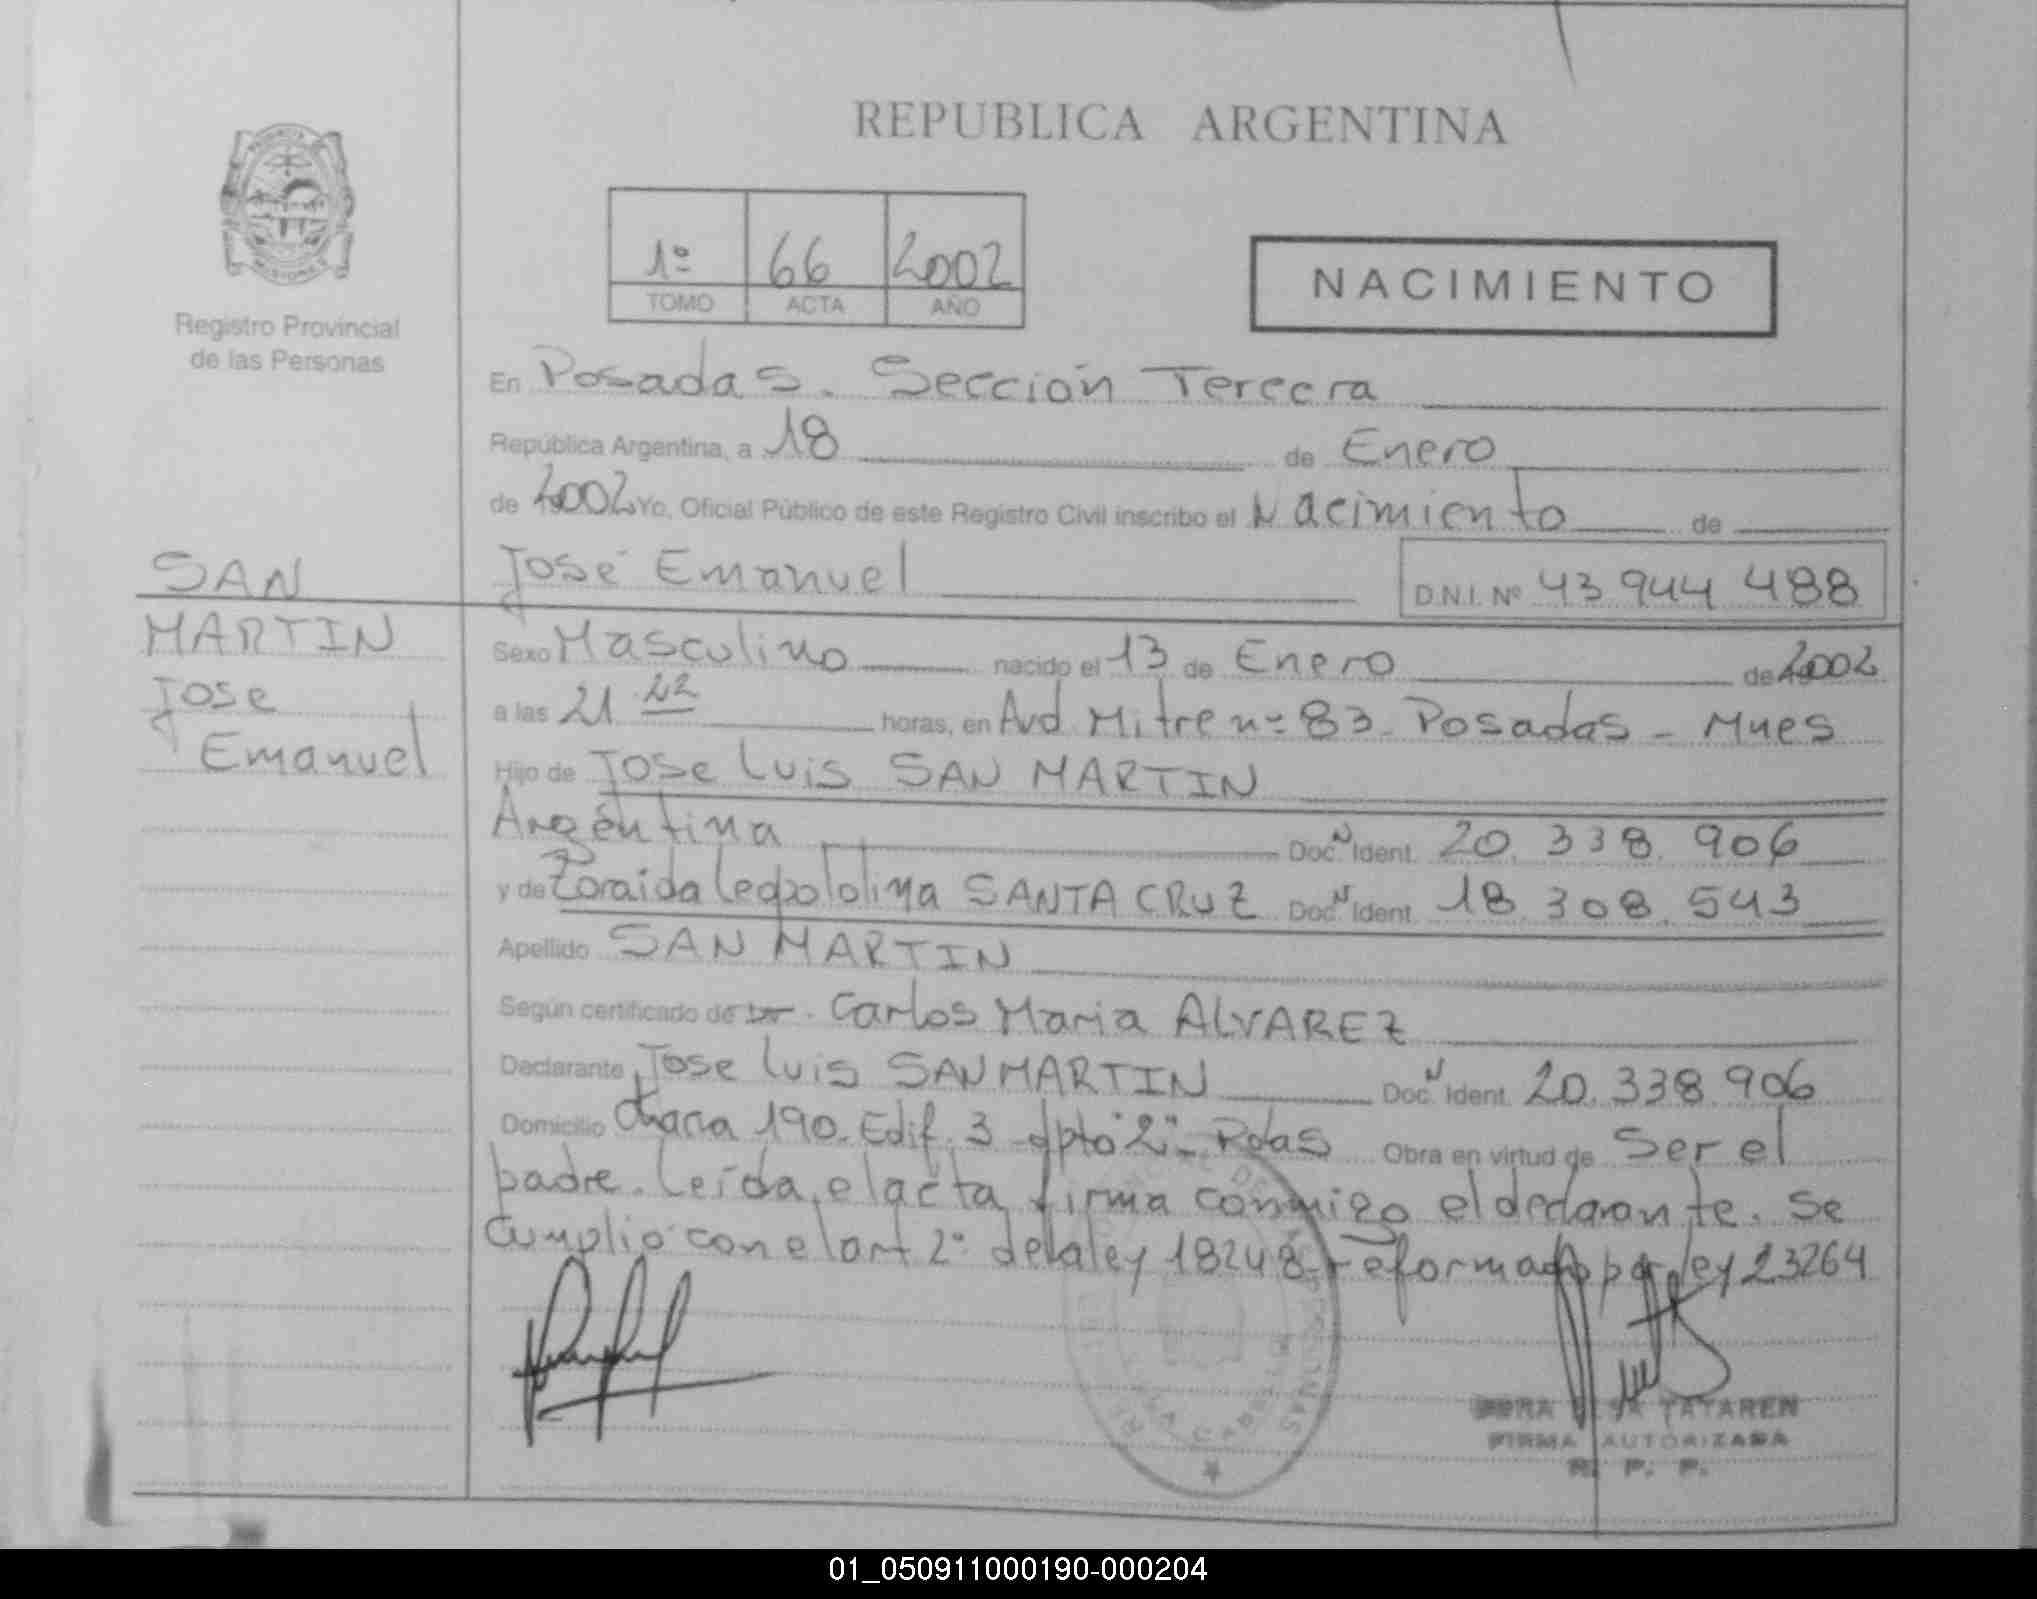 REPUBLICA ARGENTINA
1º 66 2002
TOMO ACTA AÑO
NACIMIENTO
Registro Provincial
de las Personas
En Posadas. Sección Tercera
República Argentina, a 18 de Enero
de 2002 Yo, Oficial Público de este Registro Civil inscribo el Nacimiento de
José Emanuel D.N.I. Nº 43 944 488
SAN
MARTIN
Jose
Emanuel
Sexo Masculino nacido el 13 de Enero de 2002
a las 21 22 horas, en Avd Mitre nº 83. Posadas - Mnes
Hijo de Jose Luis SAN MARTIN
Argentina Doc. N Ident. 20.338.906
y de Zoraida Leopoldina SANTA CRUZ Doc. N Ident. 18.308.543
Apellido SAN MARTIN
Según certificado de Dr. Carlos Maria ALVAREZ
Declarante Jose Luis SAN MARTIN Doc. N Ident. 20.338.906
Domicilio Chacra 190. Edif. 3 dpto "2" - Pdas Obra en virtud de Ser el
padre. Leída el acta firma conmigo el declarante. Se
cumplió con el art 2º de la ley 18248 reformado por ley 23264
TATAREN
FIRMA AUTORIZADA
R. P. P.
01_050911000190-000204